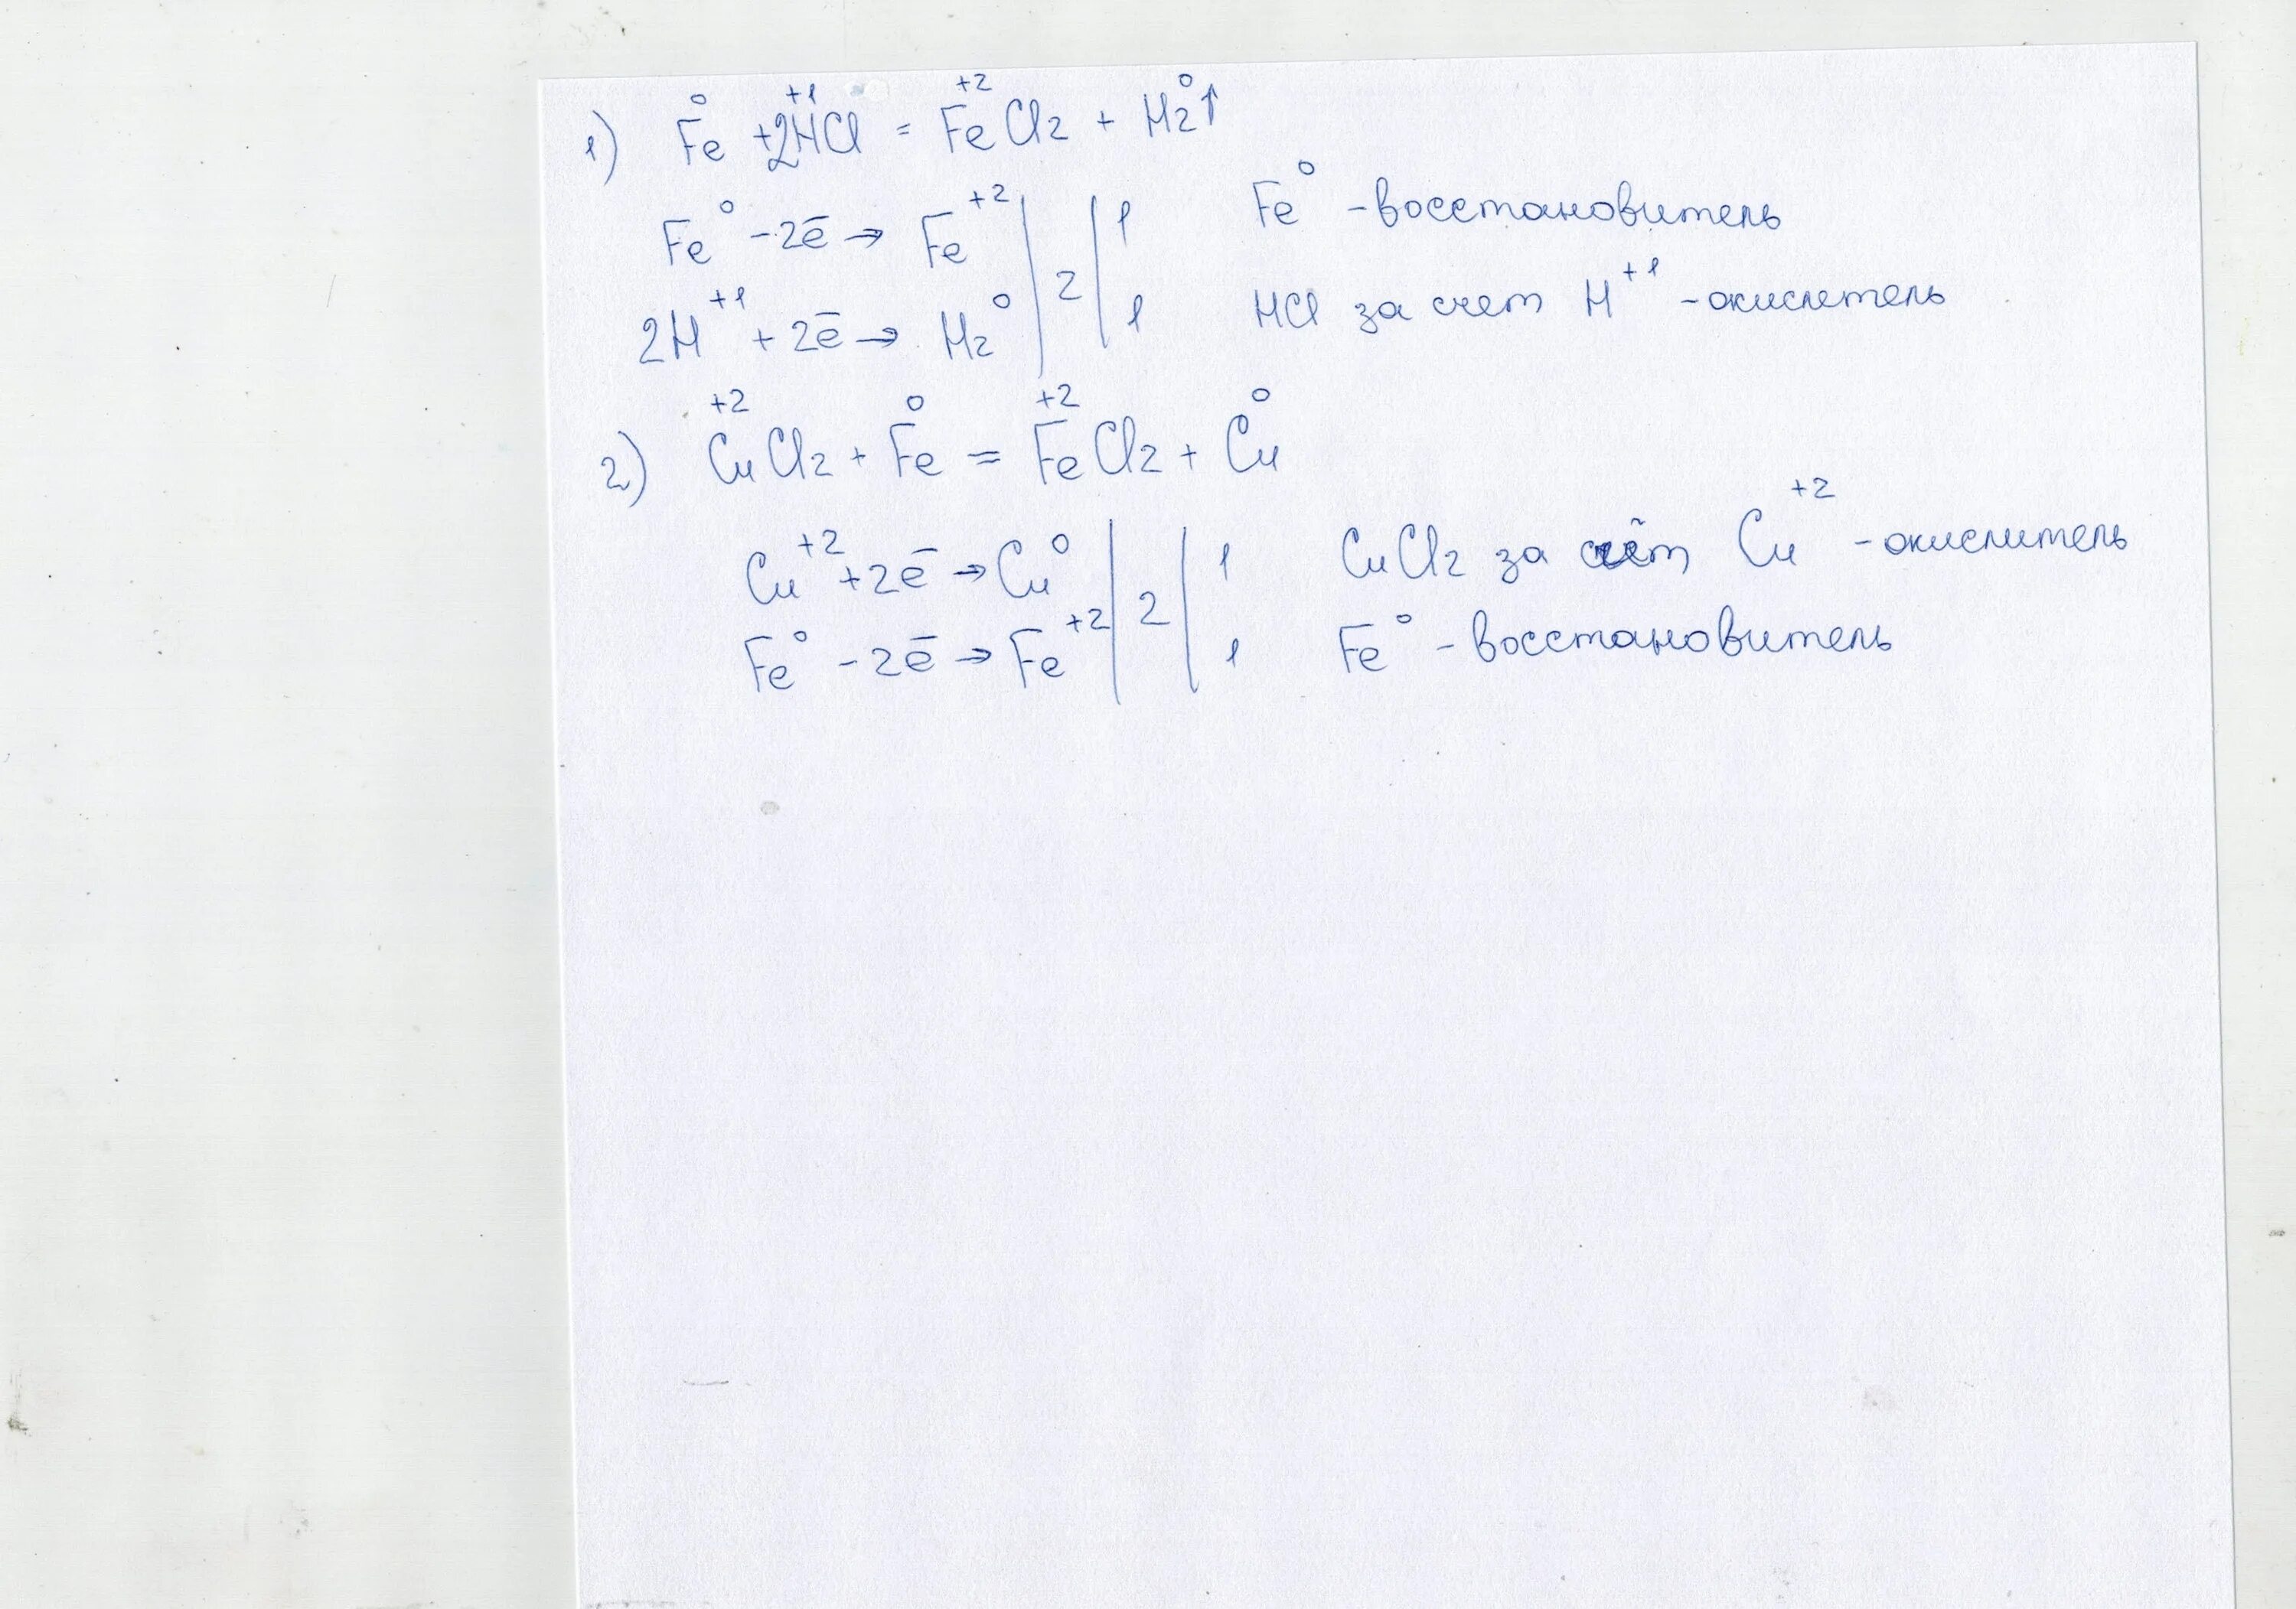 1) Fe⁰ + 2H⁺¹Cl = Fe⁺²Cl₂ + H₂⁰↑
Fe⁰ - 2ē → Fe⁺² | 2 | 1 Fe⁰ - восстановитель
2H⁺¹ + 2ē → H₂⁰ | | 1 HCl за счет H⁺¹ - окислетель
2) Cu⁺²Cl₂ + Fe⁰ = Fe⁺²Cl₂ + Cu⁰
Cu⁺² + 2ē → Cu⁰ | 2 | 1 CuCl₂ за счёт Cu⁺² - окислитель
Fe⁰ - 2ē → Fe⁺² | | 1 Fe⁰ - восстановитель